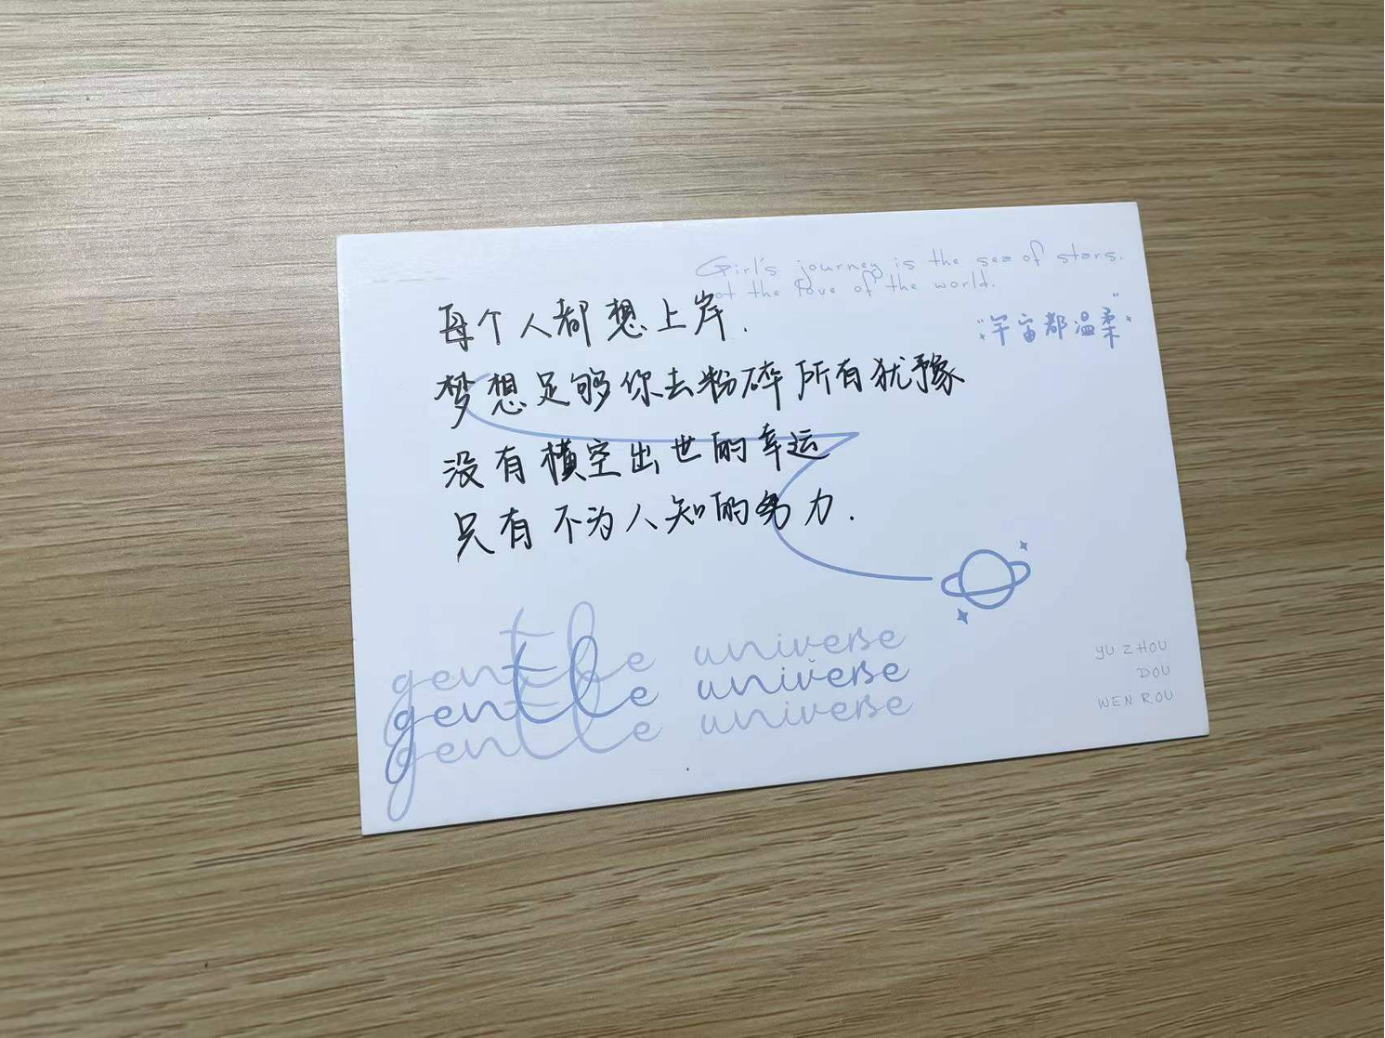 Girl's journey is the sea of stars.
not the love of the world.
"宇宙都温柔"
每个人都想上岸.
梦想足够你去粉碎所有犹豫
没有横空出世的幸运
只有不为人知的努力.
gentle universe
gentle universe
gentle universe
YU ZHOU
DOU
WEN ROU